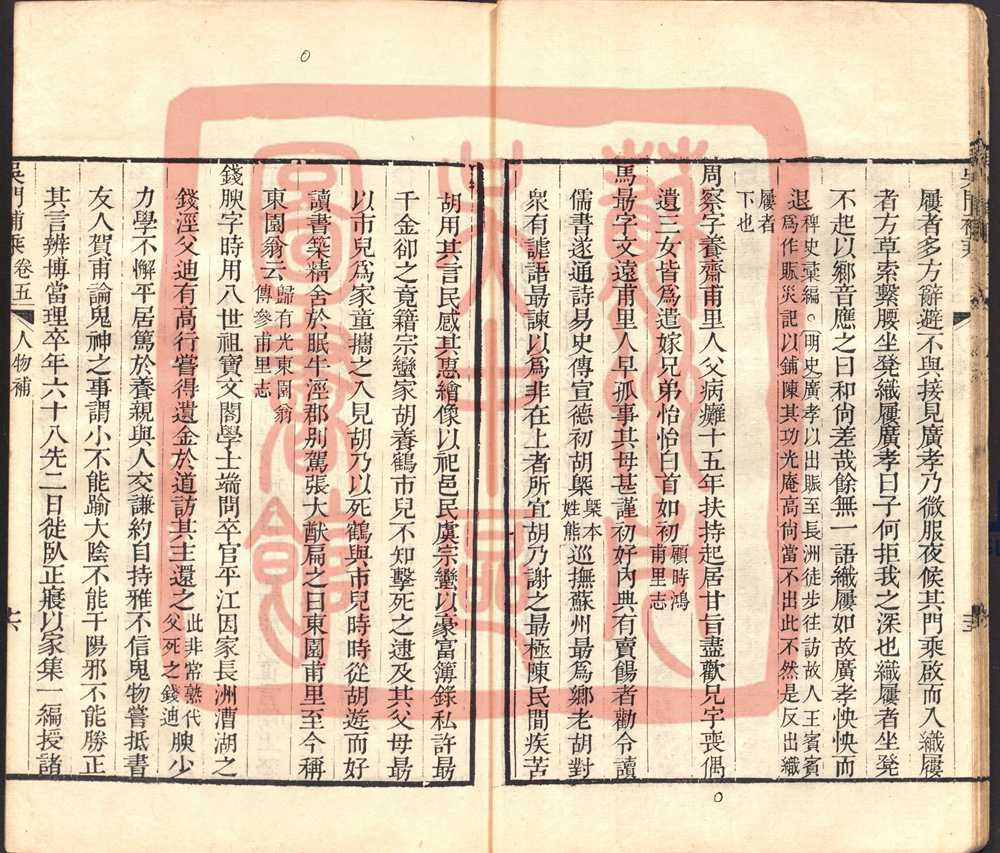 屨者多方辭避不與接見廣孝乃微服夜候其門乘啟而入織屨
者方草索繫腰坐凳織屨廣孝曰子何拒我之深也織屨者坐凳
不起以鄉音應之曰和尙差哉餘無一語織屨如故廣孝怏怏而
退稗史彙編。〔明史〕廣孝以出賑至長洲徒步往訪故人王賓賓
爲作賑災記以鋪陳其功光庵高尙當不出此不然是反出織
屨者
下也
周察字養齋甫里人父病癱十五年扶持起居甘旨盡歡兄宇喪偶
遺三女皆爲遣嫁兄弟怡怡白首如初顧時鴻
甫里志
馬朂字文遠甫里人早孤事其母甚謹初好內典有賣餳者勸令讀
儒書遂通詩易史傳宣德初胡槩槩本
姓熊巡撫蘇州最爲鄉老胡對
衆有謔語最諫以爲非在上者所宜胡乃謝之最極陳民間疾苦
胡用其言民感其惠繪像以祀邑民虞宗蠻以豪富簿錄私許最
千金卻之竟籍宗蠻家胡養鶴市兒不知擊死之逮及其父母最
以市兒爲家童攜之入見胡乃以死鶴與市兒時時從胡遊而好
讀書築精舍於眠牛涇郡別駕張大猷扁之曰東園甫里至今稱
東園翁云歸有光東園翁
傳參甫里志
錢腴字時用八世祖寶文閣學士端問卒官平江因家長洲漕湖之
錢涇父迪有高行嘗得遺金於道訪其主還之此非常熟代
父死之錢迪腴少
力學不懈平居篤於養親與人交謙約自持雅不信鬼物嘗抵書
友人賀甫論鬼神之事謂小不能踰大陰不能干陽邪不能勝正
其言辨博當理卒年六十八先二日徙臥正寢以家集一編授諸
吳門補乘 卷五 人物補